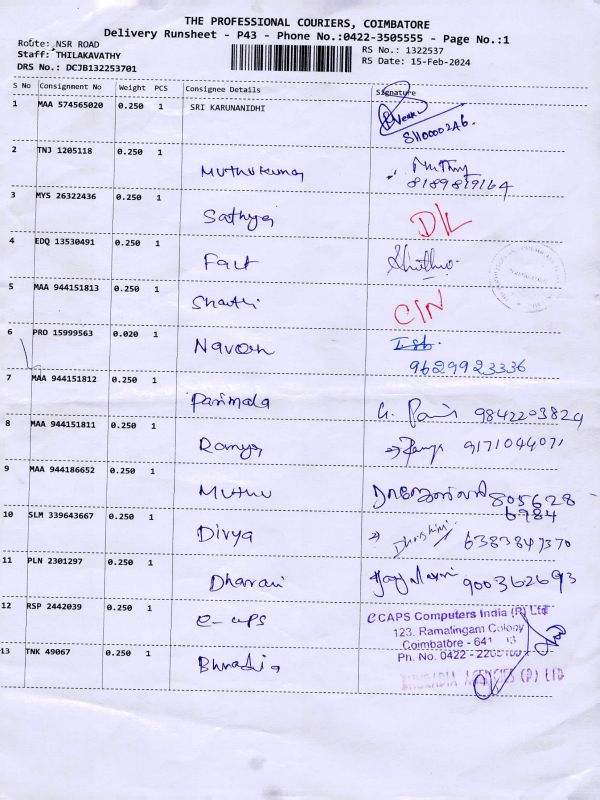 THE PROFESSIONAL COURIERS, COIMBATORE
Delivery Runsheet - P43 - Phone No.:0422-3505555 - Page No.:1
Route: NSR ROAD
Staff: THILAKAVATHY
DRS No.: DCJB132253701
RS No.: 1322537
RS Date: 15-Feb-2024
S No Consignment No Weight PCS Consignee Details Signature
1 MAA 574565020 0.250 1 SRI KARUNANIDHI
2 TNJ 1205118 0.250 1 Muthukumar
8189819164
3 MYS 26322436 0.250 1 Sathya D/L
4 EDQ 13530491 0.250 1 Fact
5 MAA 944151813 0.250 1 Shanthi C/N
6 PRO 15999563 0.020 1 Naveen
9629923336
7 MAA 944151812 0.250 1 Parimala 9842203824
8 MAA 944151811 0.250 1 Ramya Ramya 9171044071
9 MAA 944186652 0.250 1 Muthu 805628
6984
10 SLM 339643667 0.250 1 Divya 6383847370
11 PLN 2301297 0.250 1 Dharani 900362693
12 RSP 2442039 0.250 1 e-caps eCAPS Computers India (P) Ltd
123, Ramalingam Colony
Coimbatore - 641
Ph. No. 0422 -
13 TNK 49067 0.250 1 AGENCIES (P) LTD